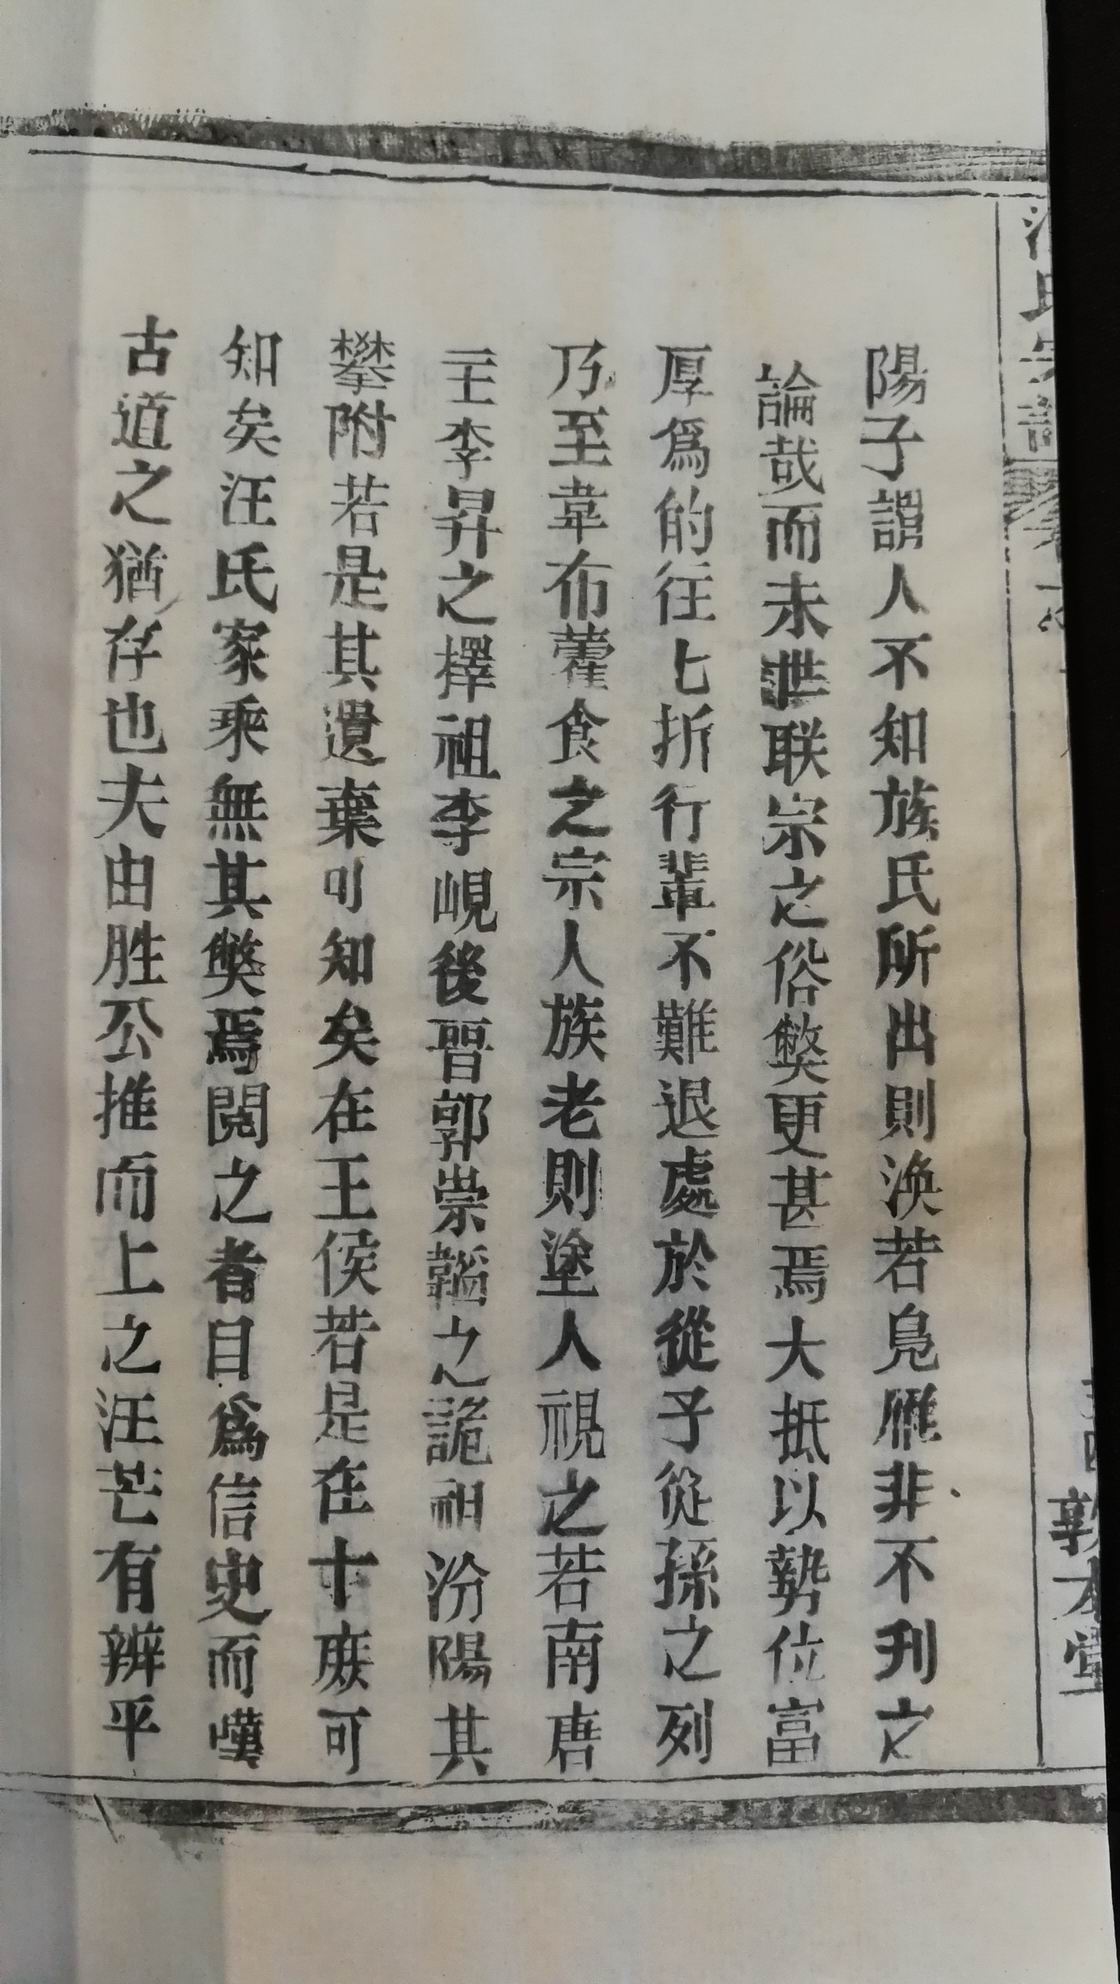 陽子謂人不知族氏所出則渙若鳧雁非不刋之
論哉而未世聨宗之俗獘更甚焉大抵以勢位富
厚爲的徃匕折行輩不難退處於從子從孫之列
乃至韋布藿食之宗人族老則塗人視之若南唐
主李昇之擇祖李峴後晉郭崇韜之詭祖汾陽其
攀附若是其遺棄可知矣在王侯若是在士庻可
知矣汪氏家乘無其獘焉閱之者目爲信史而嘆
古道之猶存也夫由胜公推而上之汪芒有辨平
敦本堂